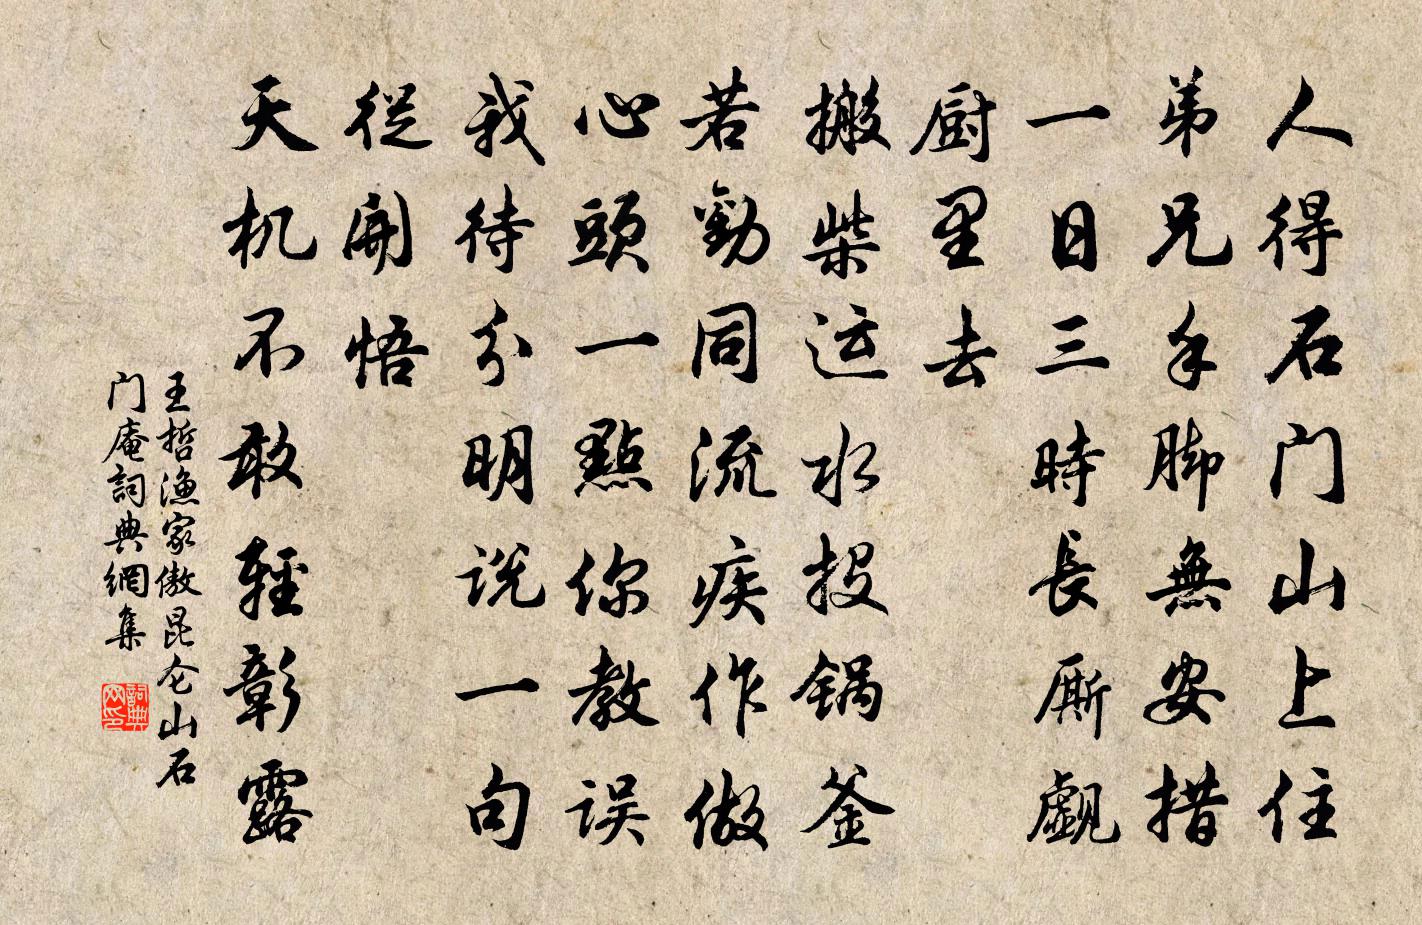 人得石门山上住
弟兄手脚無安措
一日三時長厮覷
厨里去
搬柴运水投锅釜
若勸同流疾作做
心頭一點你教误
我待分明说一句
從開悟
天机不敢輕彰露
王哲渔家傲昆仑山石
门庵詞典網集
詞典
网印